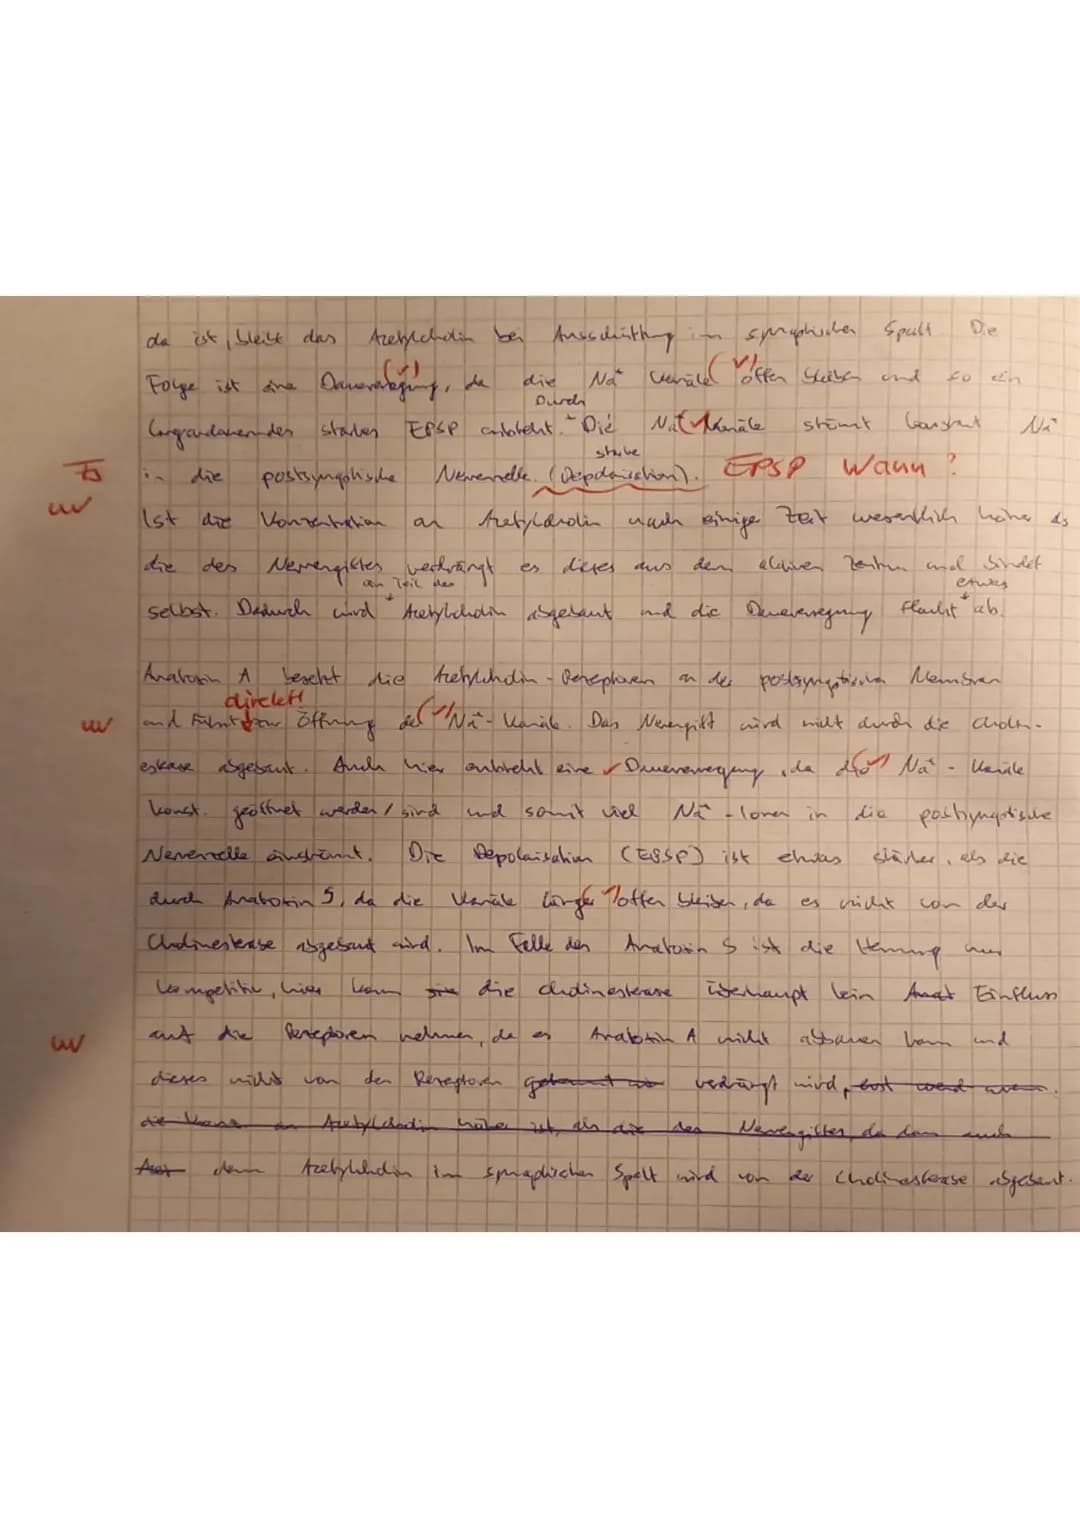 da ist, bleibt das Acetylcholin bei Ausschüttung im synaptischen Spalt. Die
Folge ist eine Dauererregung, da die Na⁺ Kanäle offen bleiben und so ein
Durch
langandauerndes starkes EPSP entsteht. Die Na⁺ Kanäle strömt konstant Na⁺
starke
in die postsynaptische Nervenzelle. (Depolarisation). EPSP Wann?
Ist die Konzentration an Acetylcholin nach einige Zeit wesentlich höher als
die des Nervengiftes verdrängt es dieses aus dem aktiven Zentrum und bindet
ein Teil des etwas
selbst. Dadurch wird Acetylcholin abgebaut und die Dauererregung flacht ab.
Anatoxin A besetzt die Acetylcholin-Rezeptoren an der postsynaptischen Membran
direkt!
und führt zur Öffnung der Na⁺-Kanäle. Das Nervengift wird nicht durch die Cholin-
esterase abgebaut. Auch hier entsteht eine Dauererregung, da die Na⁺-Kanäle
konst. geöffnet werden / sind und somit viel Na⁺-Ionen in die postsynaptische
Nervenzelle einströmt. Die Depolarisation (EPSP) ist etwas stärker, als die
durch Anatoxin S, da die Kanäle länger offen bleiben, da es nicht von der
Cholinesterase abgebaut wird. Im Falle des Anatoxin S ist die Hemmung nur
kompetitiv, hier kann die Cholinesterase überhaupt kein Einfluss
auf die Rezeptoren nehmen, da es Anatoxin A nicht abbauen kann und
dieses nicht von den Rezeptoren verdrängt wird,
an Acetylcholin höher ist, als die des Nervengiftes, da dann auch
denn Acetylcholin im synaptischen Spalt wird von der Cholinesterase abgebaut.